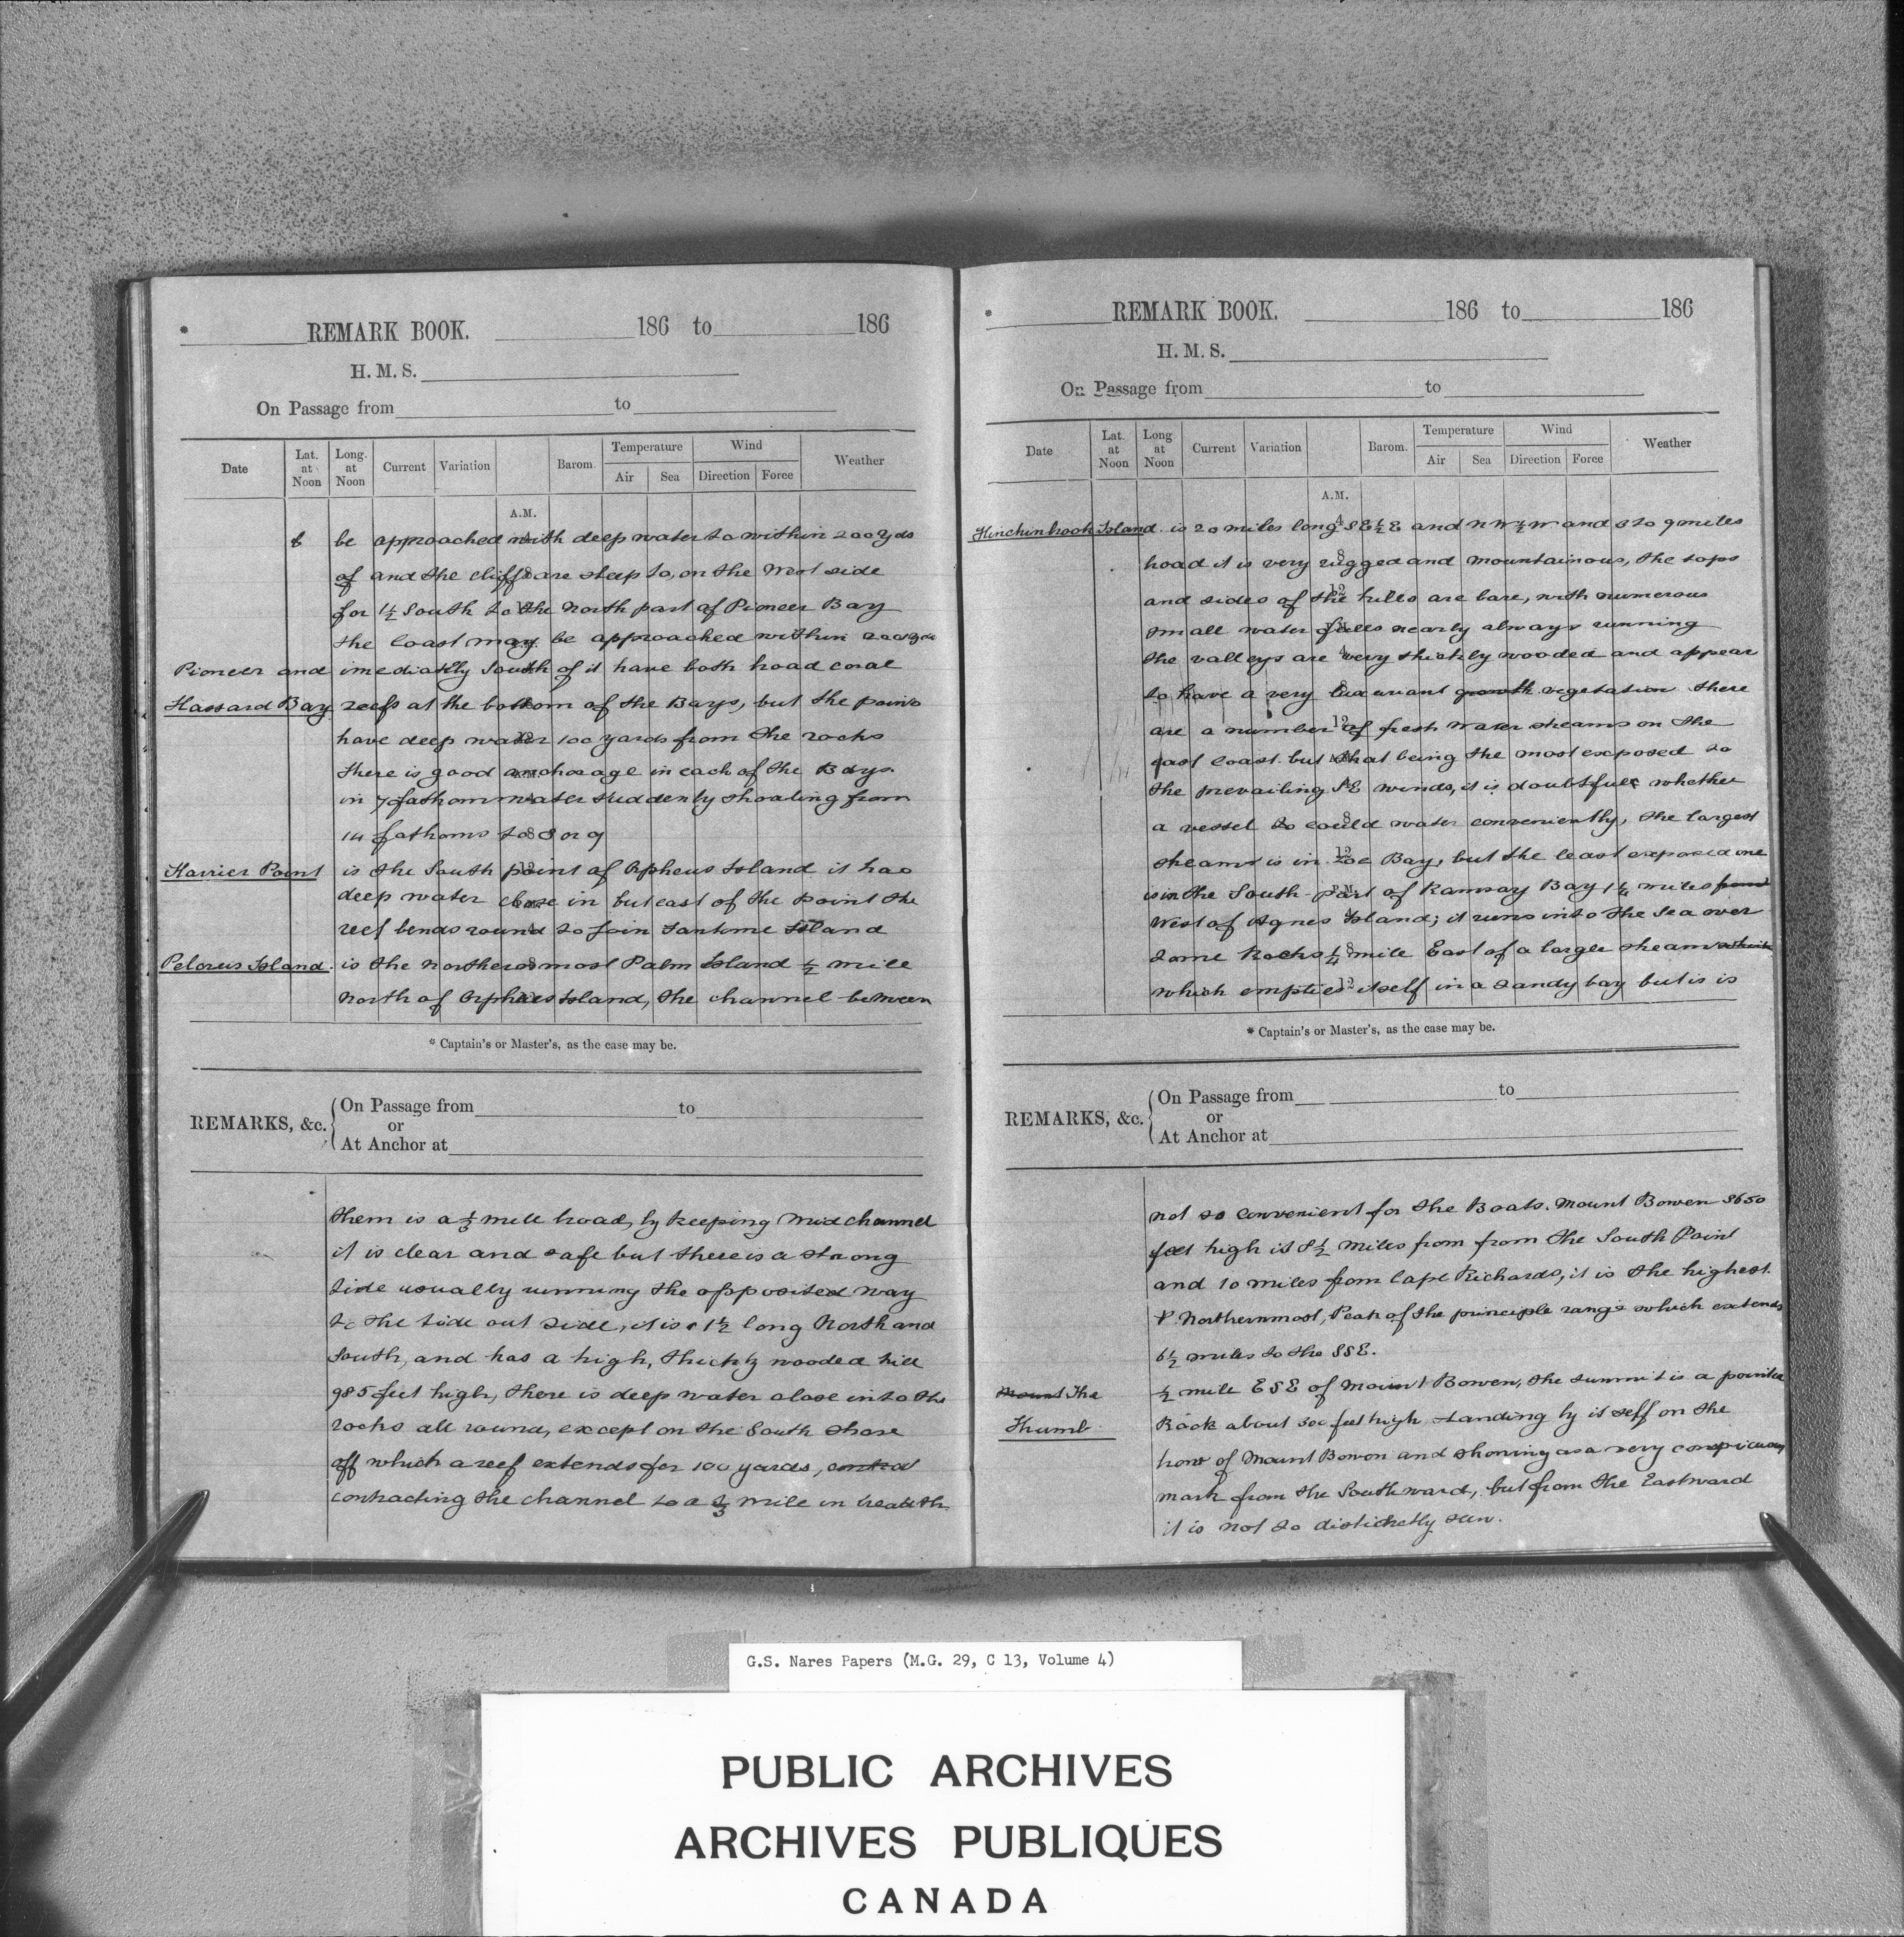 * REMARK BOOK. 186 to 186
H. M. S.
On Passage from to
Date Lat. at Noon Long. at Noon Current Variation Barom. Temperature Air Sea Wind Direction Force Weather
A.M.
be approached with deep water to within 200 yds
of and the cliffs are steep to, on the West side
for 1½ South to the North part of Pioneer Bay
the Coast may be approached within 200 yds
Pioneer and imediatly South of it have both broad coral
Hassard Bay reefs at the bottom of the Bays, but the points
have deep water 100 yards from the rocks
there is good anchorage in each of the Bays
in 7 fathoms water suddenly shoaling from
14 fathoms to 8 or 9
Harrier Point is the South point of Orpheus Island it has
deep water close in but east of the point the
reef bends round to join Fantome Island
Pelorus Island. is the Northernmost Palm Island ½ mile
North of Orpheus Island, the channel between
* Captain's or Master's, as the case may be.
REMARKS, &c. On Passage from to
or
At Anchor at
them is a ⅓ mile broad, by keeping Mid channel
it is clear and safe but there is a strong
tide usually running the opposited way
to the tide out side, it is 1½ long North and
South, and has a high, thickly wooded hill
985 feet high, there is deep water close in to the
rocks all round, except on the South shore
off which a reef extends for 100 yards, contract
contracting the channel to a ⅓ mile in breadth
* REMARK BOOK. 186 to 186
H. M. S.
On Passage from to
Date Lat. at Noon Long at Noon Current Variation Barom. Temperature Air Sea Wind Direction Force Weather
A.M.
Hinchinbrook Island is 20 miles long SE½E and NW½W and 8 to 9 miles
broad it is very rugged and mountainous, the tops
and sides of the hills are bare, with numerous
small water falls nearly always running
the valleys are very thickly wooded and appear
to have a very luxuriant growth vegetation there
are a number of fresh water streams on the
East Coast but that being the most exposed to
the prevailing SE winds, it is doubtfull whether
a vessel to could water conveniently, the largest
streams is in Zoe Bay, but the least exposed one
is in the South part of Ramsay Bay 1¼ miles
West of Agnes Island; it runs into the Sea over
some Rocks ¼ mile East of a larger stream which
which empties itself in a sandy bay but is is
* Captain's or Master's, as the case may be.
REMARKS, &c. On Passage from to
or
At Anchor at
not so convenient for the Boats. Mount Bowen 3650
feet high is 8½ miles from from the South Point
and 10 miles from Cape Richards, it is the highest
& Northernmost, Peak of the principle range which extends
6½ miles to the SSE.
Mount The ½ mile ESE of Mount Bowen, the summit is a pointed
Thumb Rock about 300 feet high standing by it self on the
brow of Mount Bowen and showing as a very conspicuous
mark from the Southward, but from the Eastward
it is not so distictly seen.
G.S. Nares Papers (M.G. 29, C 13, Volume 4)
PUBLIC ARCHIVES
ARCHIVES PUBLIQUES
CANADA